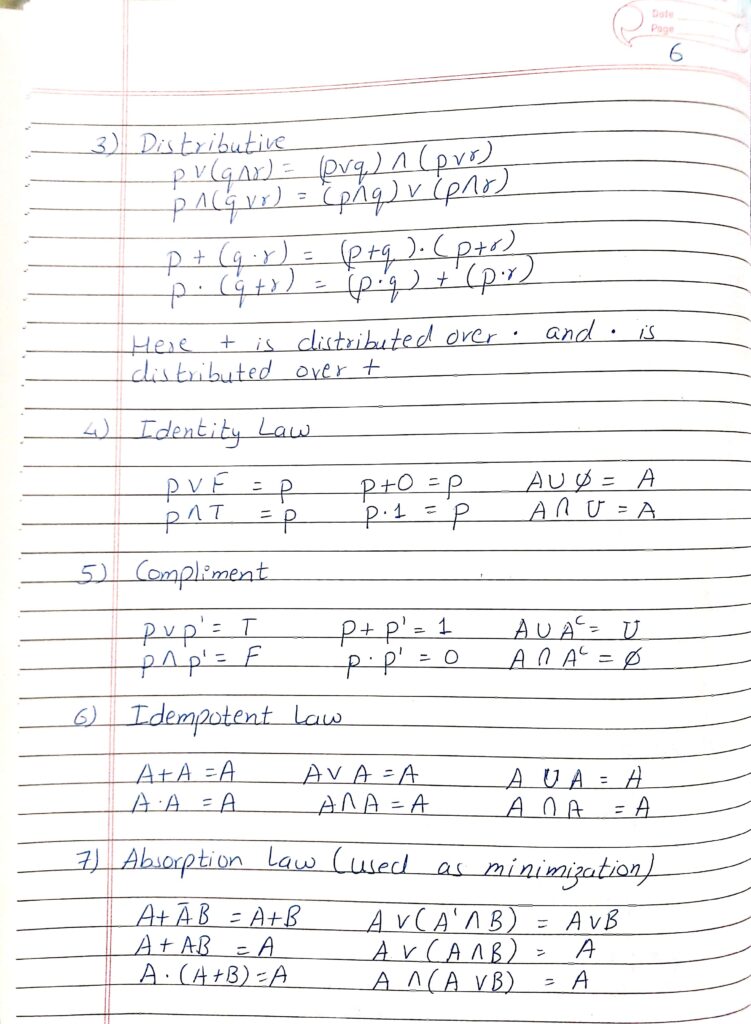 Date
Page
6
3) Distributive
p ∨ (q ∧ r) = (p ∨ q) ∧ (p ∨ r)
p ∧ (q ∨ r) = (p ∧ q) ∨ (p ∧ r)
p + (q · r) = (p + q) · (p + r)
p · (q + r) = (p · q) + (p · r)
Here + is distributed over · and · is
distributed over +
4) Identity Law
p ∨ F = p p + 0 = p A ∪ ∅ = A
p ∧ T = p p · 1 = p A ∩ U = A
5) Compliment
p ∨ p' = T p + p' = 1 A ∪ Aᶜ = U
p ∧ p' = F p · p' = 0 A ∩ Aᶜ = ∅
6) Idempotent Law
A + A = A A ∨ A = A A ∪ A = A
A · A = A A ∧ A = A A ∩ A = A
7) Absorption Law (used as minimization)
A + ĀB = A + B A ∨ (A' ∧ B) = A ∨ B
A + AB = A A ∨ (A ∧ B) = A
A · (A + B) = A A ∧ (A ∨ B) = A